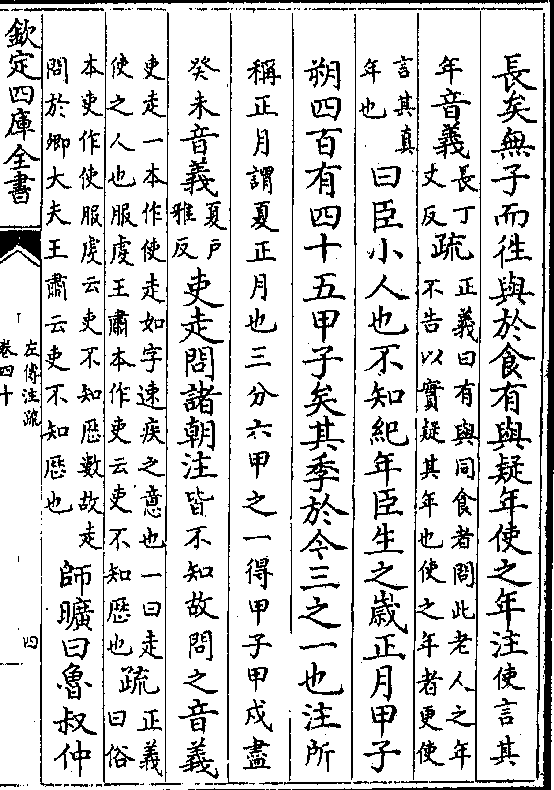 長矣無子而徃與於食有與疑年使之年注使言其
年音義長丁丈反疏正義曰有與同食者問此老人之年不告以實疑其年也使之年者更使
言其真年也曰臣小人也不知紀年臣生之嵗正月甲子
朔四百有四十五甲子矣其季於今三之一也注所
稱正月謂夏正月也三分六甲之一得甲子甲戌盡
癸未音義夏戶雅反吏走問諸朝注皆不知故問之音義
吏走一本作使走如字速疾之意也一曰走使之人也服䖍王肅本作吏云吏不知厯也疏正義曰俗
本吏作使服䖍云吏不知厯數故走問於卿大夫王肅云吏不知厯也師曠曰魯叔仲
欽定四庫全書
左傳注疏
卷四十
四